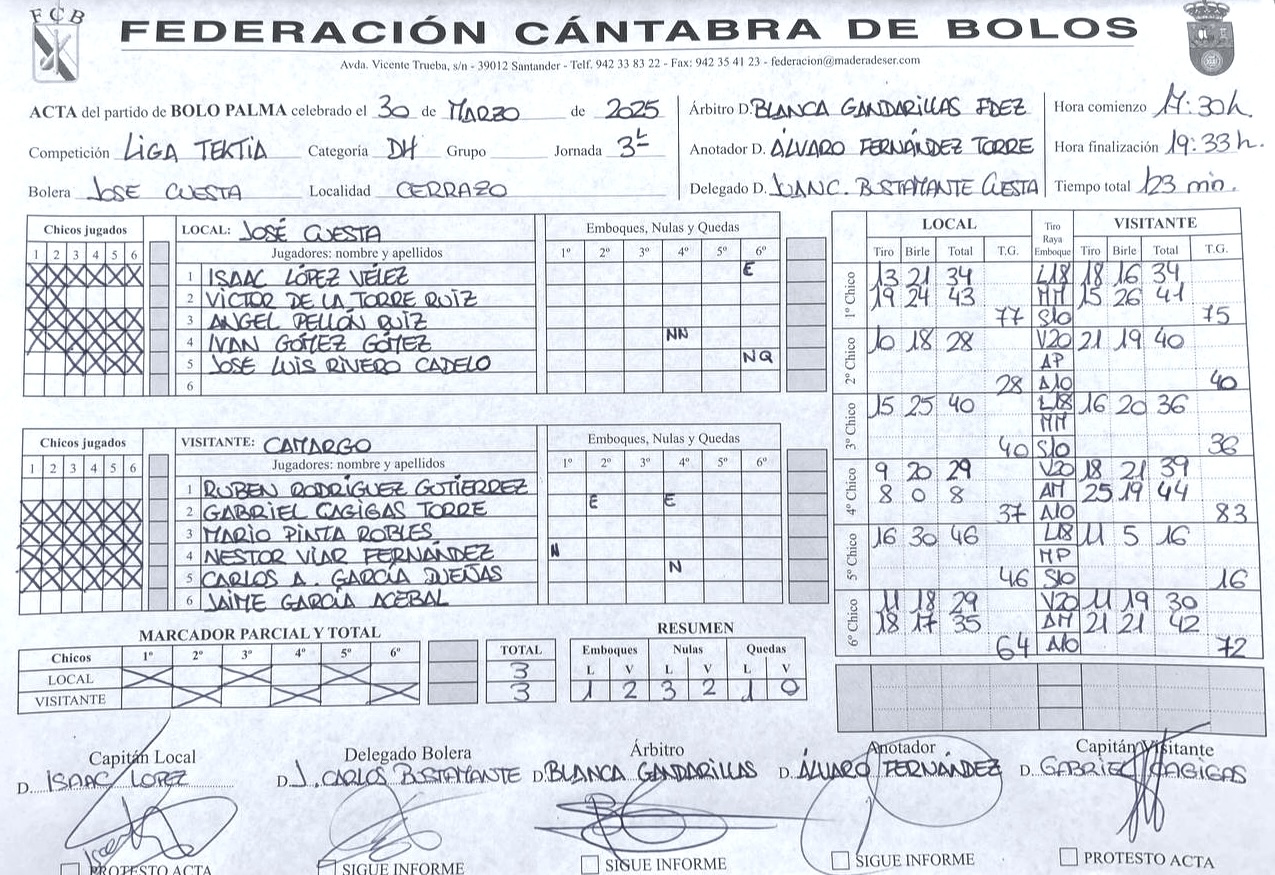 FCB
FEDERACIÓN CÁNTABRA DE BOLOS
Avda. Vicente Trueba, s/n - 39012 Santander - Telf. 942 33 83 22 - Fax: 942 35 41 23 - federacion@maderadeser.com
ACTA del partido de BOLO PALMA celebrado el 30 de MARZO de 2025
Competición LIGA TEKTIA Categoría DH Grupo Jornada 3ª
Bolera JOSE CUESTA Localidad CERRAZO
Árbitro D. BLANCA GANDARILLAS FDEZ
Anotador D. ÁLVARO FERNÁNDEZ TORRE
Delegado D. JUAN C. BUSTAMANTE CUESTA
Hora comienzo 17:30h.
Hora finalización 19:33h.
Tiempo total 123 min.
Chicos jugados LOCAL: JOSÉ CUESTA Emboques, Nulas y Quedas
1 2 3 4 5 6 Jugadores: nombre y apellidos 1º 2º 3º 4º 5º 6º
X X X X X X 1 ISAAC LÓPEZ VÉLEZ E
X X 2 VICTOR DE LA TORRE RUÍZ
X X X X X X 3 ANGEL PELLÓN RUIZ
X X X X X X 4 IVAN GÓMEZ GÓMEZ NN
X X X X 5 JOSÉ LUIS RIVERO CADELO NQ
6
Chicos jugados VISITANTE: CAMARGO Emboques, Nulas y Quedas
1 2 3 4 5 6 Jugadores: nombre y apellidos 1º 2º 3º 4º 5º 6º
1 RUBEN RODRÍGUEZ GUTIERREZ
X X X X X X 2 GABRIEL CAGIGAS TORRE E E
X X X X X X 3 MARIO PINTA ROBLES
X X X X X X 4 NESTOR VIAR FERNÁNDEZ N
X X X X X X 5 CARLOS A. GARCÍA DUEÑAS N
6 JAIME GARCÍA ACEBAL
MARCADOR PARCIAL Y TOTAL
Chicos 1º 2º 3º 4º 5º 6º TOTAL
LOCAL X X X 3
VISITANTE X X X 3
RESUMEN
Emboques Nulas Quedas
L V L V L V
1 2 3 2 1 0
LOCAL Tiro Raya Emboque VISITANTE
Tiro Birle Total T.G. Tiro Birle Total T.G.
1º Chico
13 21 34 L18 18 16 34
19 24 43 MM 15 26 41
77 S10 75
2º Chico
10 18 28 V20 21 19 40
AP
28 A10 40
3º Chico
15 25 40 L18 16 20 36
MM
40 S10 36
4º Chico
9 20 29 V20 18 21 39
8 0 8 AM 25 19 44
37 A10 83
5º Chico
16 30 46 L18 11 5 16
MP
46 S10 16
6º Chico
11 18 29 V20 11 19 30
18 17 35 AM 21 21 42
64 A10 72
Capitán Local
D. ISAAC LOPEZ
PROTESTO ACTA
Delegado Bolera
D. J. CARLOS BUSTAMANTE
SIGUE INFORME
Árbitro
D. BLANCA GANDARILLAS
SIGUE INFORME
Anotador
D. ÁLVARO FERNÁNDEZ
SIGUE INFORME
Capitán Visitante
D. GABRIEL CAGIGAS
PROTESTO ACTA